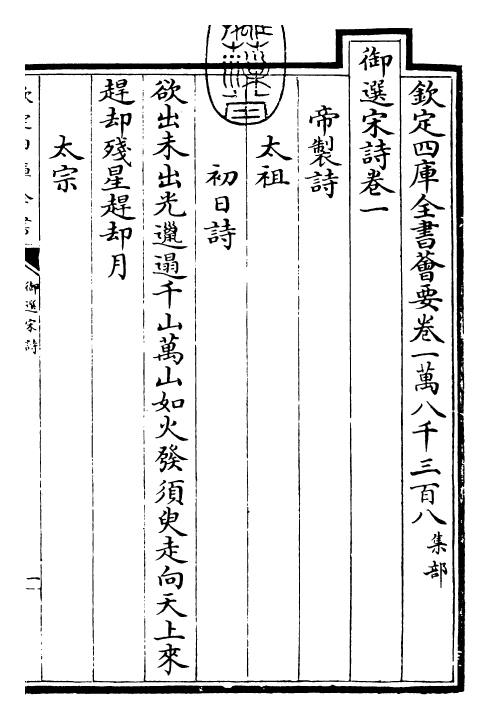 欽定四庫全書薈要卷一萬八千三百八 集部
御選宋詩卷一
帝製詩
太祖
初日詩
欲出未出光邋遢千山萬山如火發須臾走向天上來
趕却殘星趕却月
太宗
欽定四庫全書
御選宋詩
一